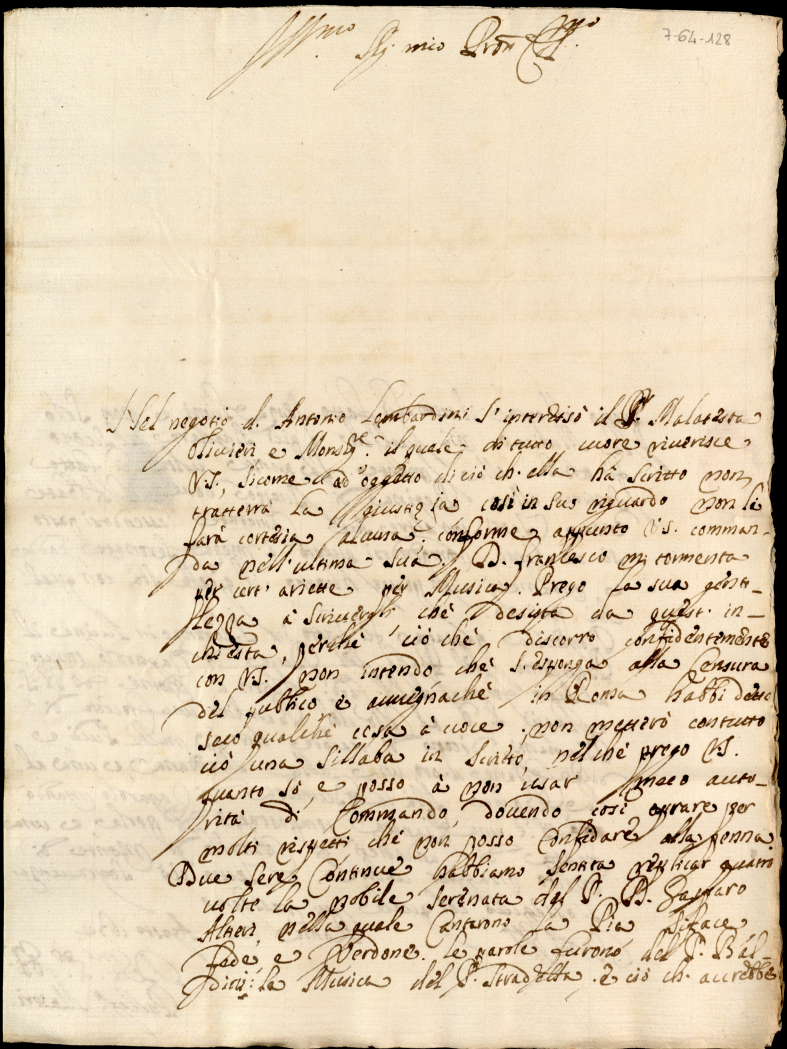 Ill.mo Sig. mio Pron Coll.mo
7-64-128
Nel negotio d. Antonio Lombardini s'interessò il S. Malatesta
Olivieri e Mons.re il quale di tutto cuore riverisce
V.S., sicome ad oggetto di ciò ch. ella hà scritto non
tratterrà la giustizia così in suo riguardo non li
farà cortesia alcuna, conforme appunto V.S. comman-
da nell'ultima sua. D. Francesco mi tormenta
per cert'ariette per Musica. Prego la sua genti-
lezza à scrivergli, che desista da quest. in-
chiesta, perche ciò che discorro confidentemente
con V.S. non intendo che s'esponga alla Censura
del publico e avvegnache in Roma habbi
seco qualche cosa à voce, non metterò contutto
ciò una sillaba in scritto, nel che prego V.S.
quanto sò, e posso à non usar meco auto-
rità di Commando, dovendo così oprare per
molti rispetti che non posso confidare alla penna.
Due sere continue habbiamo sentita replicar quatro
volte la nobile serenata del S. D. Gasparo
Altieri, nella quale cantarono la Pia Siface
Fede, e Verdone. le parole furono del S. Bal-
dini: la Musica del S. Stradella, e ciò ch. accrebbe